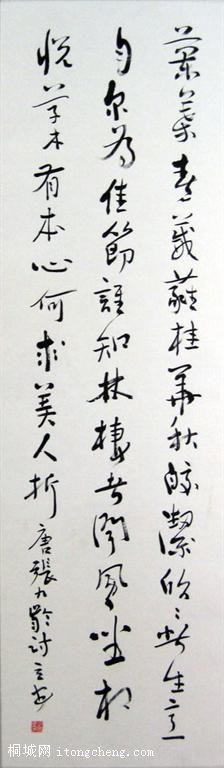 兰叶春葳蕤桂华秋皎洁欣欣此生意
自尔为佳節誰知林棲者聞風坐相
悦草木有本心何求美人折
唐張九齡詩
桐城网 itongcheng.com